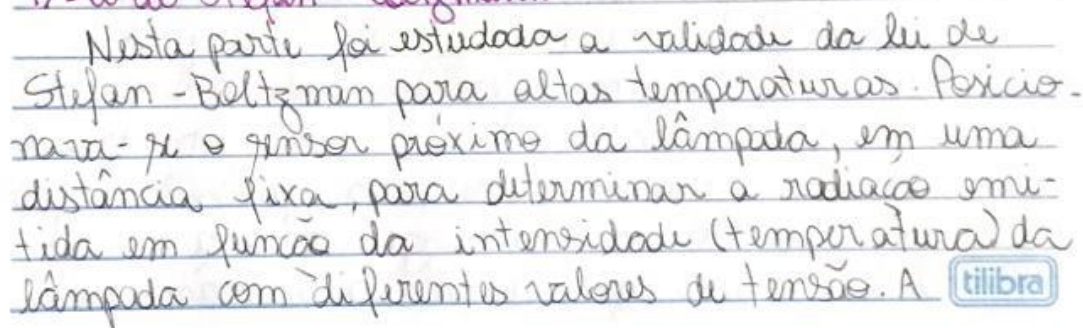 Nesta parte foi estudada a validade da lei de
Stefan-Boltzman para altas temperaturas. Posicio-
nava-se o sensor próximo da lâmpada, em uma
distância fixa, para determinar a radiação emi-
tida em função da intensidade (temperatura) da
lâmpada com diferentes valores de tensão. A tilibra